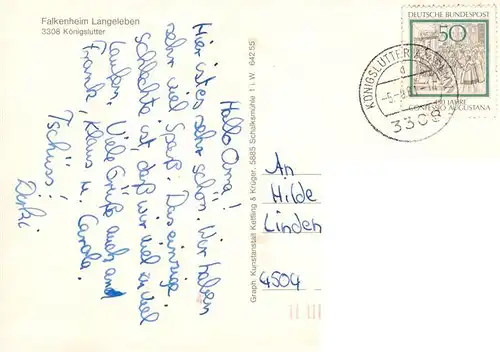 Falkenheim Langeleben
3308 Königslutter
Hallo Oma!
Hier ist es sehr schön. Wir haben
sehr viel Spaß. Das einzige
schlechte ist, daß wir viel zu viel
laufen. Viele Grüße auch and
Frank, Klaus u. Carola.
Tschüss!
Dirki
Graph. Kunstanstalt Kettling & Krüger, 5885 Schalksmühle 1 i.W. 642 55
DEUTSCHE BUNDESPOST
50
450 JAHRE
CONFESSIO AUGUSTANA
KÖNIGSLUTTER
3308
An
Hilde
Linden
4504